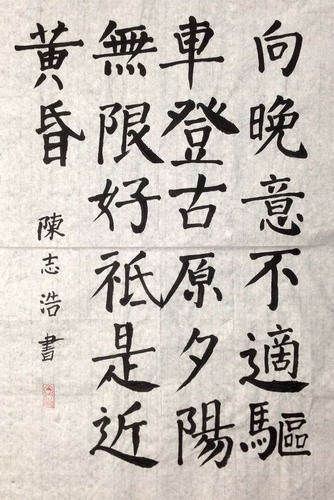 向晚意不適驅
車登古原夕陽
無限好祗是近
黃昏
陳志浩書